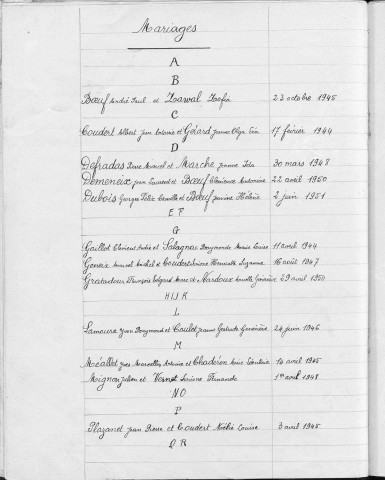 Mariages
A
B
Bœuf André Paul et Zawal Zofia 23 octobre 1945
C
Coudert Albert Jean Antoine et Gérard Jeanne Olga 17 février 1944
D
Defradas Pierre Marcel et Marche Jeanne 30 mars 1948
Demeneix Jean Laurent et Bœuf Clémence Antonine 22 avril 1950
Dubois Georges Félix Camille et Bœuf Jeanine Hélène 2 juin 1951
E F
G
Gaillot Clément André et Salagnac Raymonde Marie Louise 11 avril 1944
Geneix Michel et Coudert Henriette Suzanne 16 août 1947
François Edgard Marc et Mardoux Geneviève 29 avril 1950
H I J K
L
Lamoure Jean Raymond et Coulet Jeanne Gertrude Geneviève 24 juin 1946
M
Méallet Yves Marcellin Antoine et Marie Léontine 14 avril 1945
Moignon Julien et Vernet Fernande 1er avril 1948
N O
P
Plazanet Jean Pierre et Coudert Noélie Louise 3 avril 1945
Q R